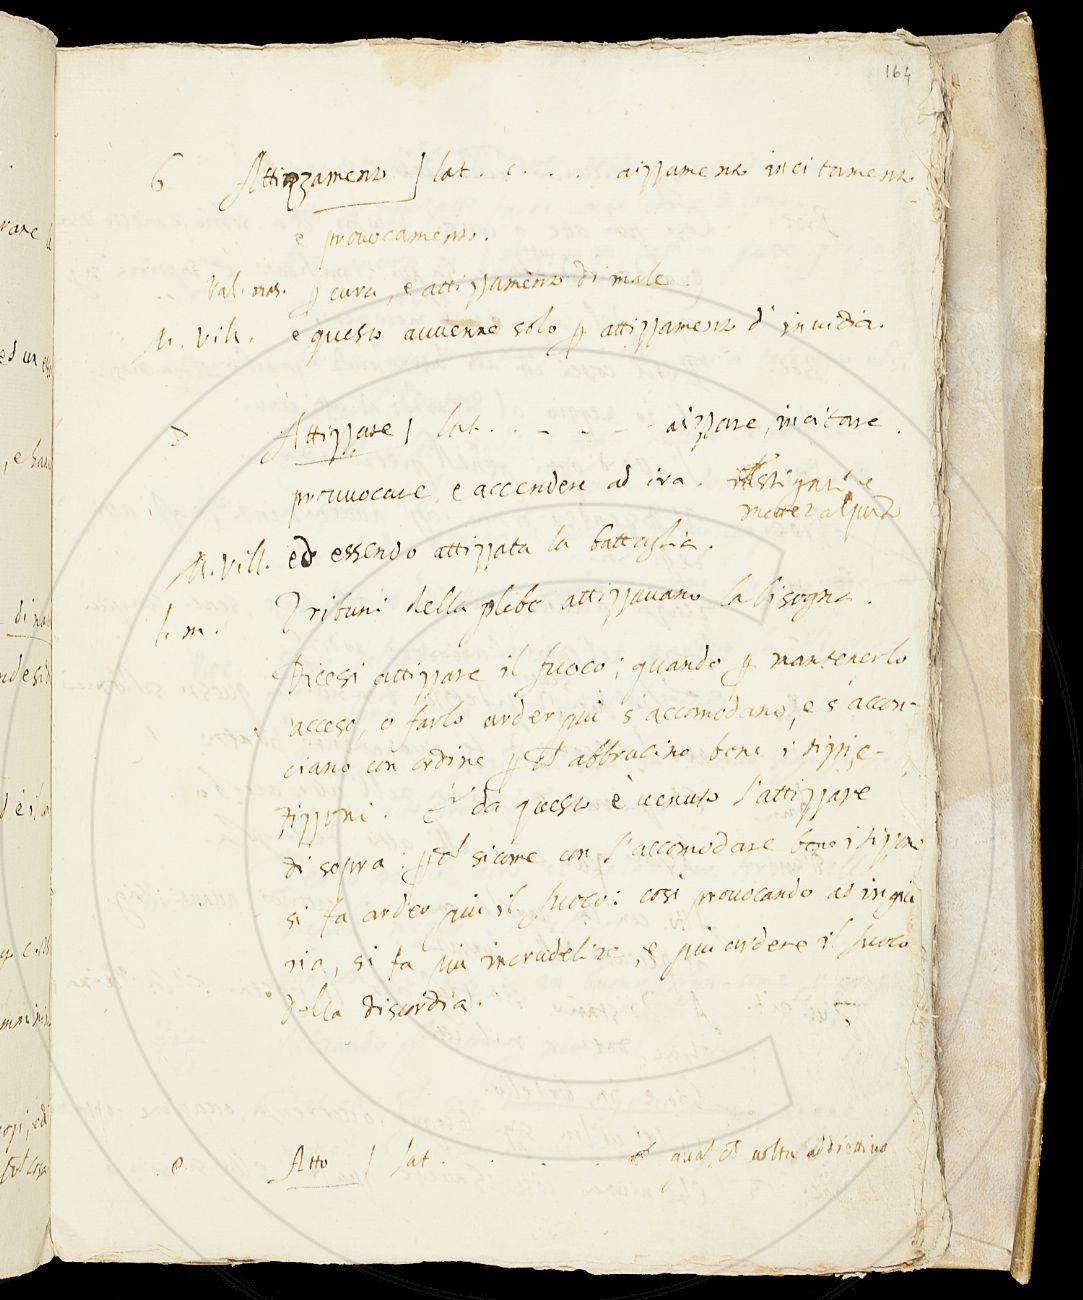 164
6 Attizzamento ] lat. c. . . . aizzamento incitamento
e provocamento.
Val. mas. p cura, e attizzamento di male.
M. Vill. e questo avvenne solo p attizzamento d'invidia.
Attizzare ] lat. . . . . . aizzare, incitare.
provvocare, e accendere ad ira. instigare e
metter al punto
M. Vill. ed essendo attizzata la battaglia.
l. m. Tribuni della plebe attizzavano la bisogna.
Dicesi attizzare il fuoco; quando p mantenerlo
acceso, o farlo arder più s'accomodano, e s'accon-
ciano con ordine abbracino bene i tizzi, e
tizzoni. E da questo è venuto l'attizzare
di sopra. sicome con l'accomodare bene i tizzoni
si fa arder più il fuoco: così provocando ad ingiu
ria, si fa più incrudelire, e più ardere il fuoco
della discordia.
e Atto ] lat. . . . . . qual volta addiettivo